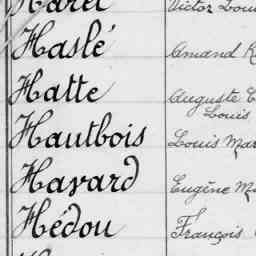 Harel Victor Loui
Haslé Amand
Hatte Auguste
Louis
Hautbois Louis Mar
Havard Eugène
Hédou François